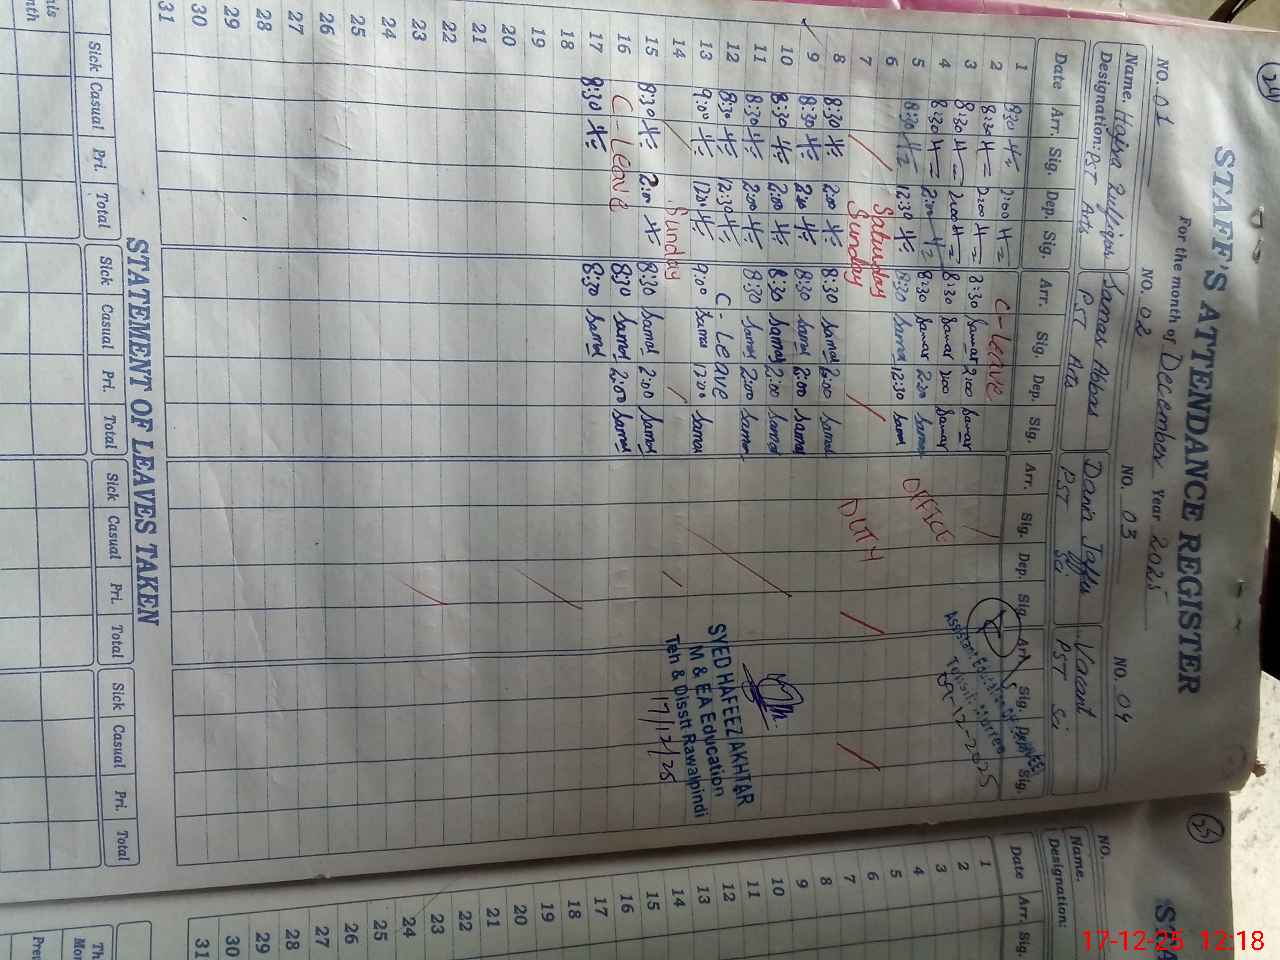 24
STAFF'S ATTENDANCE REGISTER
For the month of December Year 2025
NO. 01 NO. 02 NO. 03 NO. 04
Name. Hajra Zulfiqar Samar Abbas Dania Vacant
Designation: PST Arts PST Arts PST Sci PST Sci
Date Arr. Sig. Dep. Sig. Arr. Sig. Dep. Sig. Arr. Sig. Dep. Sig. Arr. Sig. Dep. Sig.
1 8:30 2:00 C-Leave
2 8:30 2:00 8:30 Samar 2:00 Samar
3 8:30 2:00 8:30 Samar 2:00 Samar
4 8:30 2:00 8:30 Samar 2:00 Samar
5 8:30 12:30 8:30 Samar 12:30 Samar OFFICE
6 Saturday
7 Sunday DUTY
8 8:30 2:00 8:30 Samar 2:00 Samar
9 8:30 2:00 8:30 Samar 2:00 Samar
10 8:30 2:00 8:30 Samar 2:00 Samar
11 8:30 2:00 8:30 Samar 2:00 Samar
12 8:30 12:30 C-Leave
13 9:00 12:00 9:00 Samar 12:00 Samar
14 Sunday
15 8:30 2:00 8:30 Samar 2:00 Samar
16 C-Leave 8:30 Samar 2:00 Samar
17 8:30 8:30 Samar
18
19
20
21
22
23
24
25
26
27
28
29
30
31
-12-2025
SYED HAFEEZ AKHTAR
M & EA Education
Teh & Disstt Rawalpindi
17/12/25
STATEMENT OF LEAVES TAKEN
Sick Casual Pri. Total Sick Casual Pri. Total Sick Casual Pri. Total Sick Casual Pri. Total
NO.
Name.
Designation:
Date Arr. Sig.
1
2
3
4
5
6
7
8
9
10
11
12
13
14
15
16
17
18
19
20
21
22
23
24
25
26
27
28
29
30
31
17-12-25 12:18